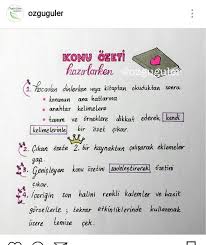 ozguguler
KONU ÖZETİ
hazırlarken
@ozguguler
1. Hocadan dinlerken veya kitaptan okuduktan sonra
• konunun ana hatlarına
• anahtar kelimelere
• tanım ve örneklere dikkat ederek, kendi
kelimelerinle bir özet çıkar.
2. Çıkan özete 2. bir kaynaktan çalışarak eklemeler
yap.
3. Genişleyen konu özetini sadeleştirerek özetini
çıkar.
4. İçeriğin son halini renkli kalemler ve basit
görsellerle ; tekrar etkinliklerinde kullanmak
üzere temize çek.